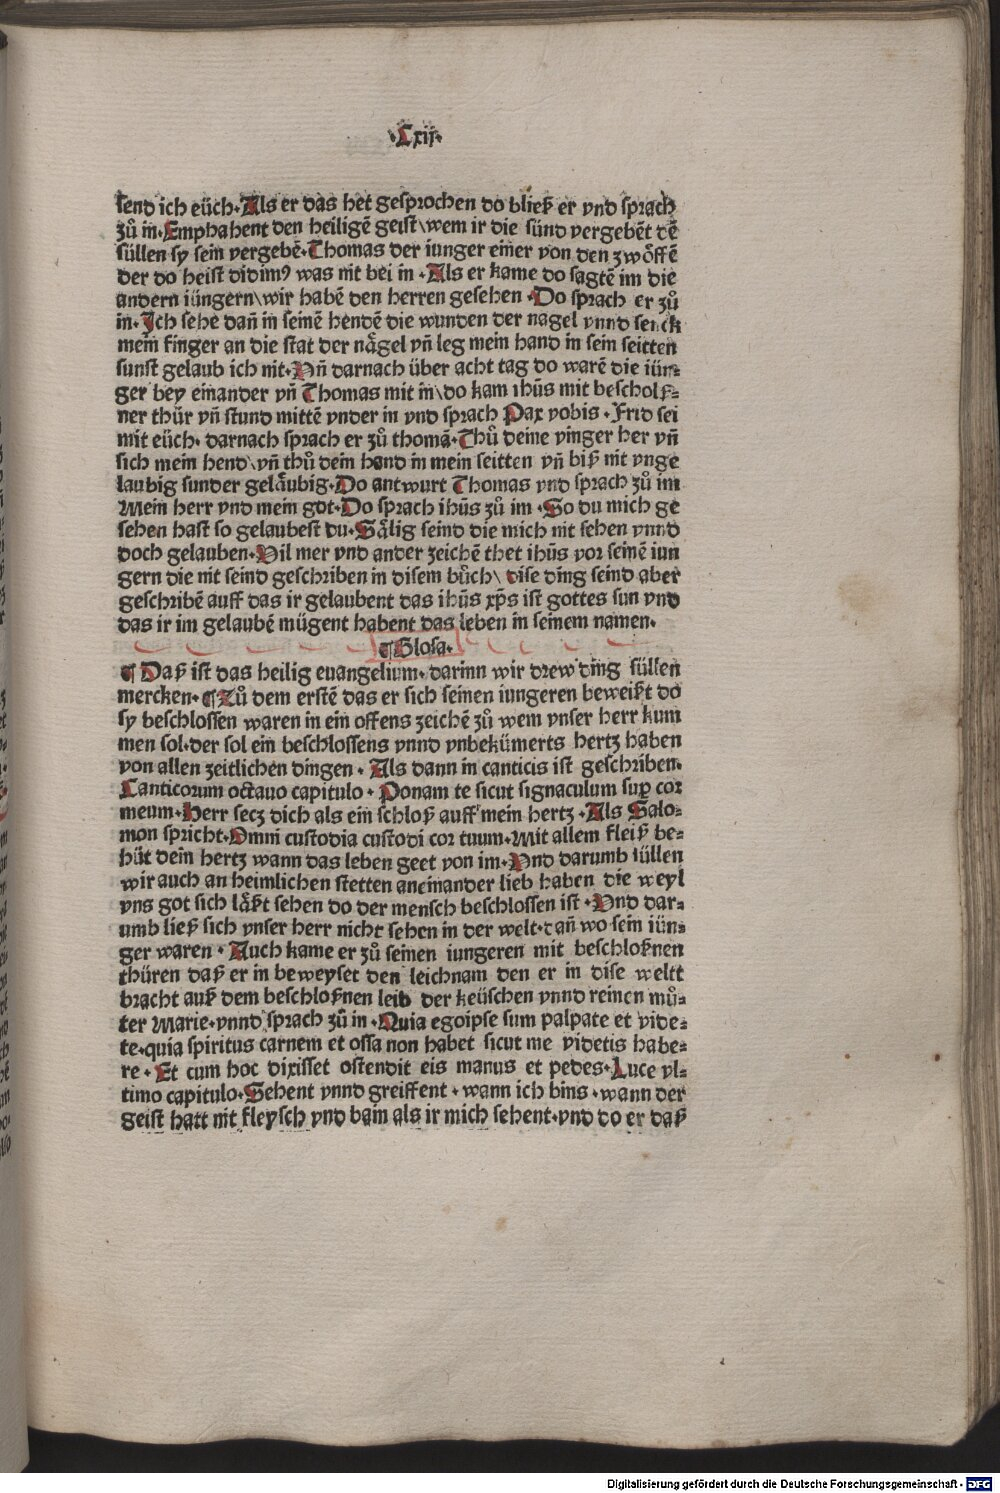 ·Cxij·
send ich eüch·Als er das het gesprochen do bließ er vnd sprach
zů in·Emphahent den heiligē geist\wem ir die sünd vergebēt dē
süllen sy sein vergebē·Thomas der iunger einer von den zwőffē
der do heist didimꝰ was nit bei in ·Als er kame do sagtē im die
andern iüngern\wir habē den herren gesehen ·Do sprach er zů
in·Ich sehe dañ in seinē hendē die wunden der nagel vnnd senck
mein finger an die stat der nägel vñ leg mein hand in sein seitten
sunst gelaub ich nit·Vñ darnach über acht tag do warē die iün⸗
ger bey einander vñ Thomas mit in\do kam ihūs mit beschloß⸗
ner thür vñ stund mittē vnder in vnd sprach Pax vobis ·Frid sei
mit eüch· darnach sprach er zů thomā·Thů deine vinger her vñ
sich mein hend\vñ thů dein hand in mein seitten vñ biß nit vnge
laubig sunder geläubig·Do antwurt Thomas vnd sprach zů im
Mein herr vnd mein got·Do sprach ihūs zů im ·So du mich ge
sehen hast so gelaubest du·Sälig seind die mich nit sehen vnnd
doch gelauben·Vil mer vnd ander zeichē thet ihūs vor seinē iun
gern die nit seind geschriben in disem bůch\ dise ding seind aber
geschribē auff das ir gelaubent das ihūs xp̄s ist gottes sun vnd
das ir im gelaubē mügent habent das leben in seinem namen·
¶Glosa·
¶ Daß ist das heilig euangelium· darinn wir drew ding süllen
mercken·¶Zů dem erstē das er sich seinen iungeren beweißt do
sy beschlossen waren in ein offens zeichē zů wem vnser herr kum
men sol·der sol ein beschlossens vnnd vnbekümerts hertz haben
von allen zeitlichen dingen · Als dann in canticis ist geschriben·
Canticorum octauo capitulo · Ponam te sicut signaculum suꝑ cor
meum·Herr secz dich als ein schloß auff mein hertz ·Als Salo⸗
mon spricht·Omni custodia custodi cor tuum·Mit allem fleiß be⸗
hüt dein hertz wann das leben geet von im·Vnd darumb süllen
wir auch an heimlichen stetten aneinander lieb haben die weyl
vns got sich läßt sehen do der mensch beschlossen ist ·Vnd dar⸗
umb ließ sich vnser herr nicht sehen in der welt·dañ wo sein iün⸗
ger waren · Auch kame er zů seinen iungeren mit beschloßnen
thüren daß er in beweyset den leichnam den er in dise weltt
bracht auß dem beschloßnen leib der keüschen vnnd reinen můͦ⸗
ter Marie·vnnd sprach zů in ·Quia egoipse sum palpate et vide⸗
te·quia spiritus carnem et ossa non habet sicut me videtis habe⸗
re · Et cum hoc dixisset ostendit eis manus et pedes·Luce vl⸗
timo capitulo·Sehent vnnd greiffent · wann ich bins · wann der
geist hatt nit fleysch vnd bain als ir mich sehent·vnd do er daß
Digitalisierung gefördert durch die Deutsche Forschungsgemeinschaft - DFG